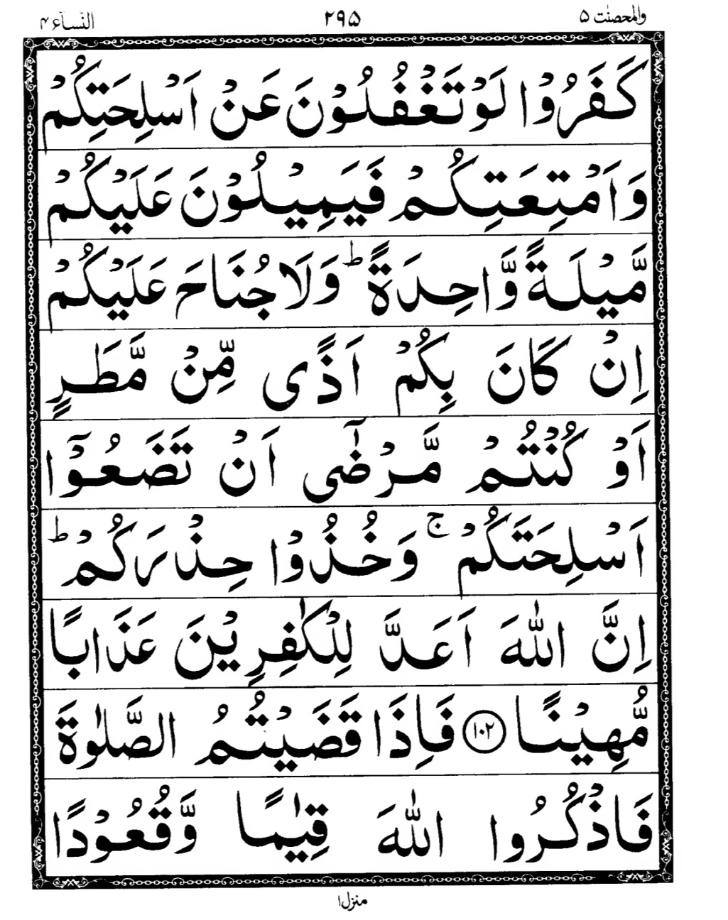 والمحصنٰت ۵ ۲۹۵ النسآء ۴
كَفَرُوْا لَوْ تَغْفُلُوْنَ عَنْ اَسْلِحَتِكُمْ
وَاَمْتِعَتِكُمْ فَيَمِيْلُوْنَ عَلَيْكُمْ
مَّيْلَةً وَّاحِدَةً ؕ وَلَا جُنَاحَ عَلَيْكُمْ
اِنْ كَانَ بِكُمْ اَذًى مِّنْ مَّطَرٍ
اَوْ كُنْتُمْ مَّرْضٰۤى اَنْ تَضَعُوْۤا
اَسْلِحَتَكُمْ ۚ وَخُذُوْا حِذْرَكُمْ ؕ
اِنَّ اللّٰهَ اَعَدَّ لِلْكٰفِرِيْنَ عَذَابًا
مُّهِيْنًا ﴿۱۰۲﴾ فَاِذَا قَضَيْتُمُ الصَّلٰوةَ
فَاذْكُرُوا اللّٰهَ قِيٰمًا وَّقُعُوْدًا
منزل ۱